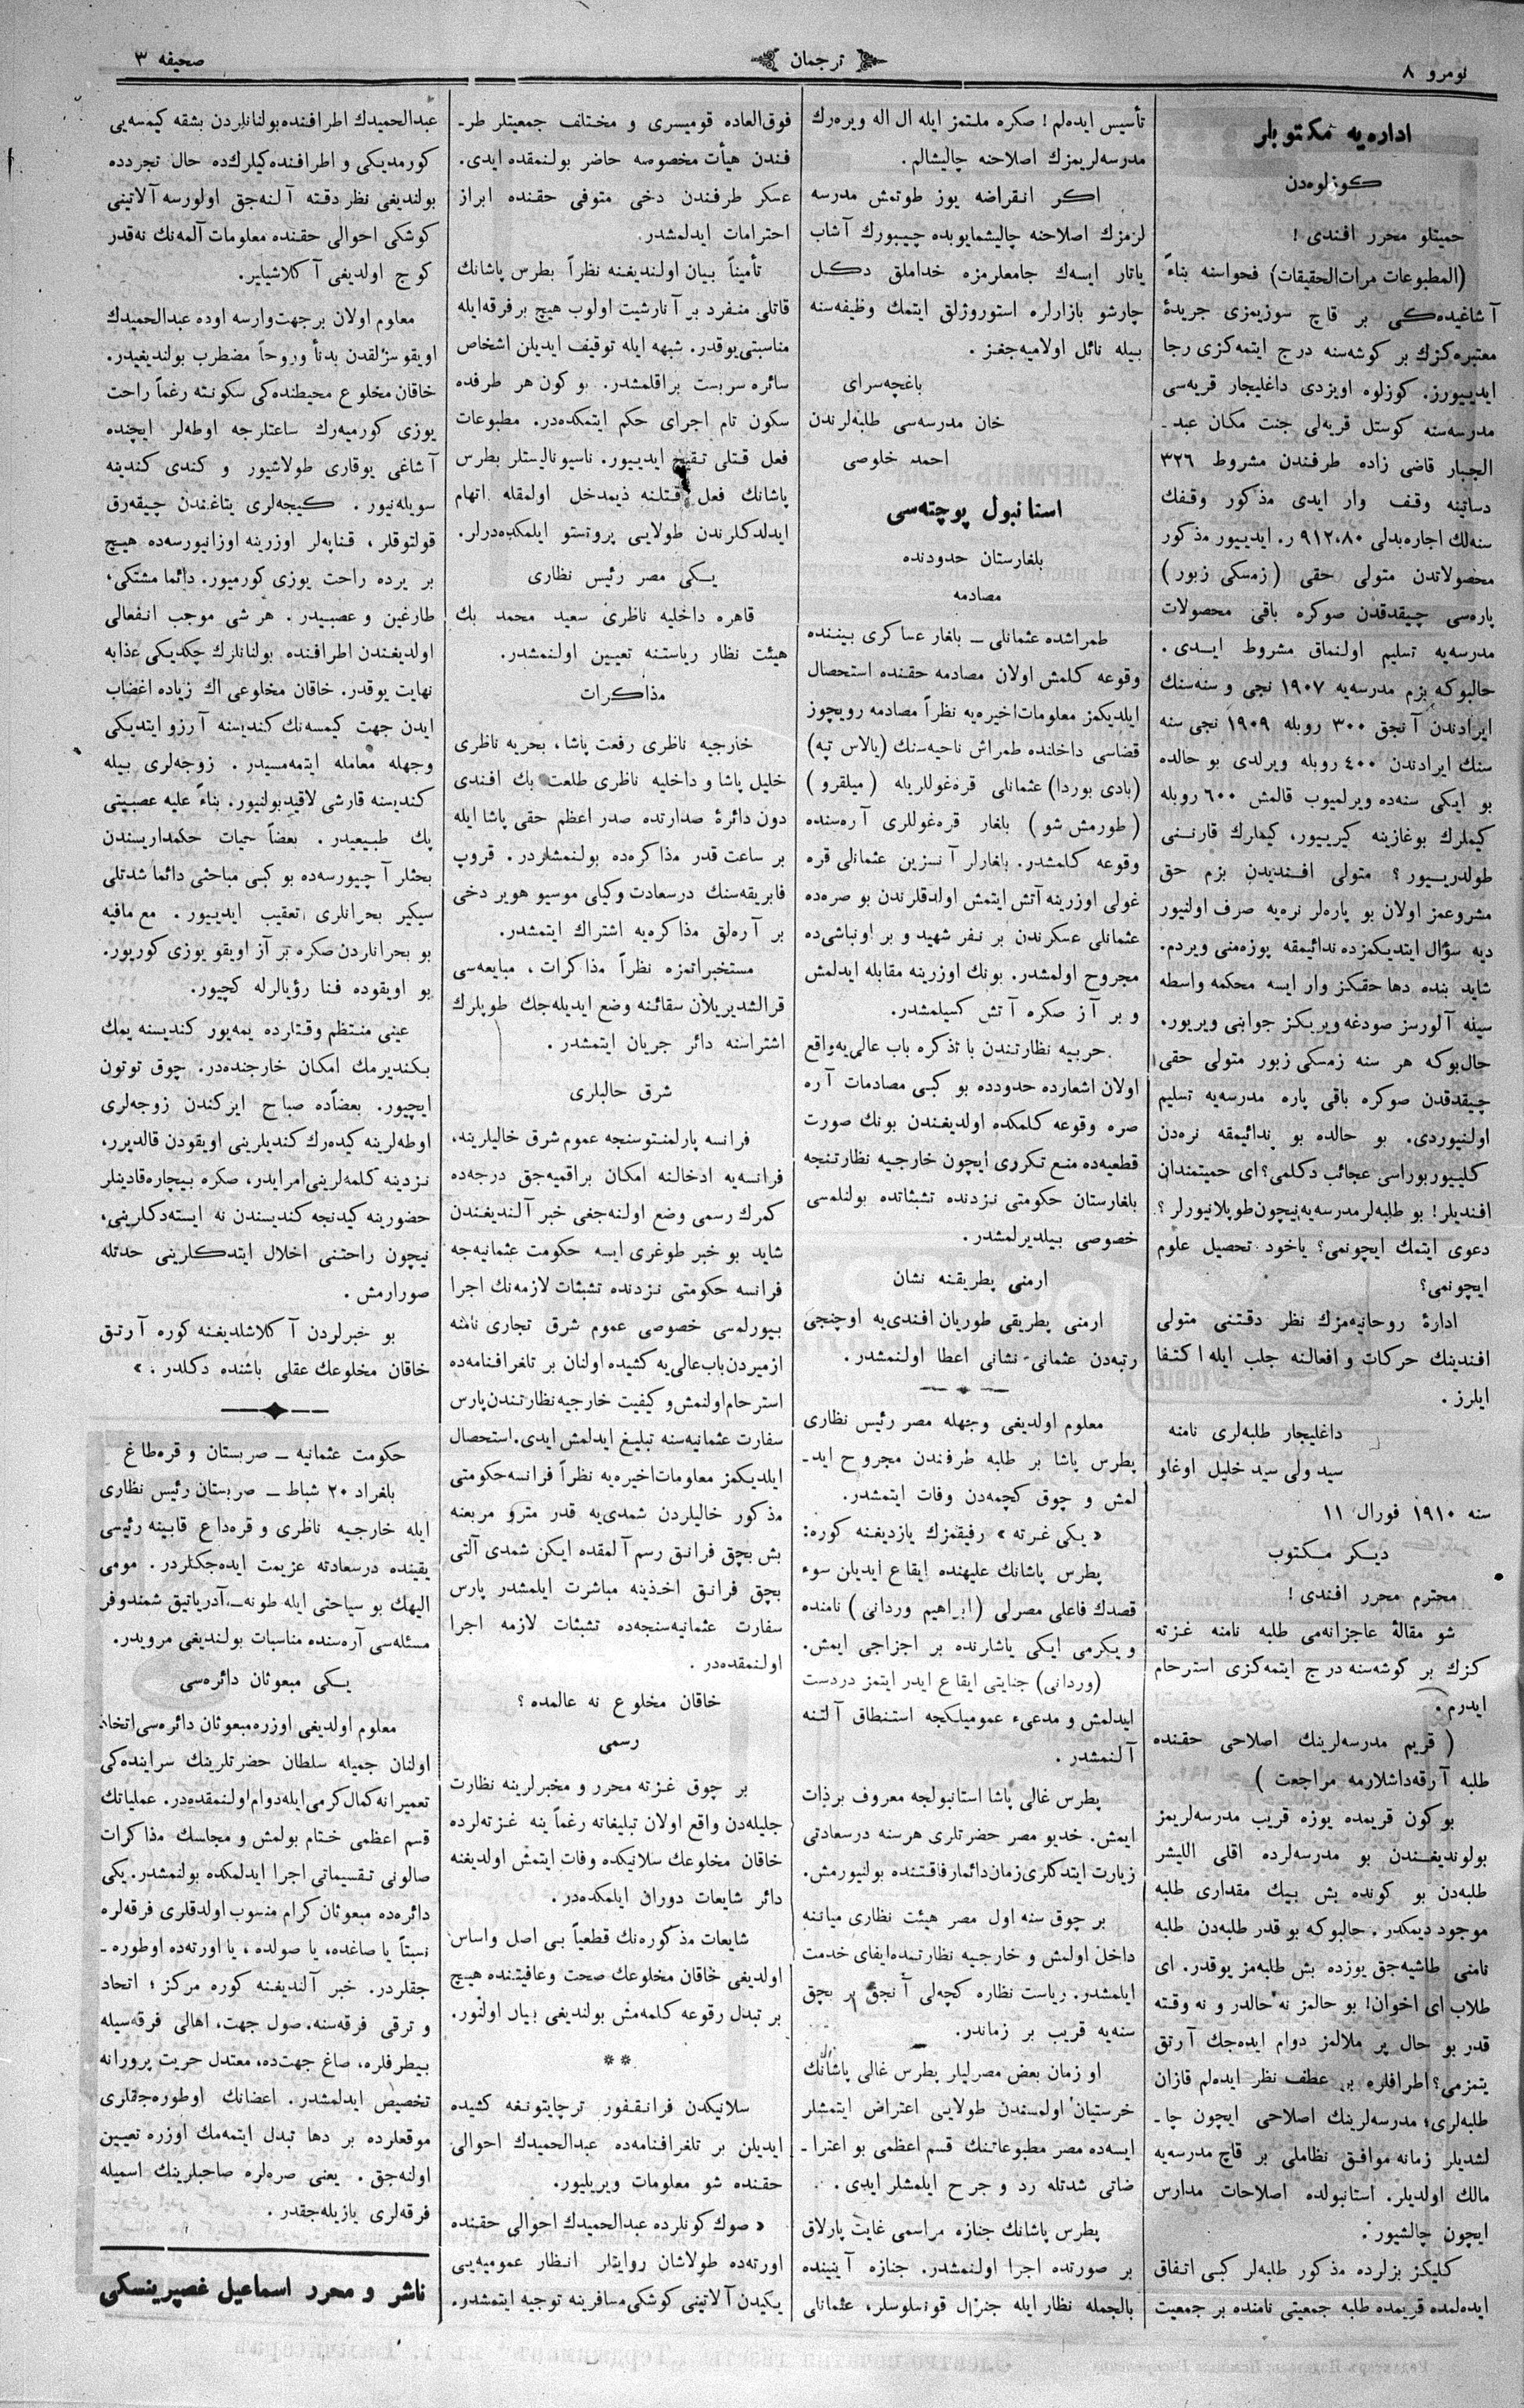 نومرو ۸
ترجمان
صحیفه ۳
اداره‌یه مکتوبلر
کوزلوه‌دن
حمیتلو محرر افندی !
(المطبوعات مرات‌الحقیقات) فحواسنه بناءً
آشاغیده‌کی بر قاچ سوزیمزی جریدهٔ
معتبره‌کزک بر کوشه‌سنه درج ایتمه‌کزی رجا
ایدییورز. کوزلوه اویزدی داغلیجار قریه‌سی
مدرسه‌سنه کوستل قریه‌لی جنت مکان عبد ـ
الجبار قاضی زاده طرفندن مشروط ۳۲٦
دساتینه وقف وار ایدی مذکور وقفک
سنه‌لک اجاره‌بدلی ۹۱۲،۸۰ ر. ایدییور مذکور
محصولاتدن متولی حقی (زمسکی زبور)
پاره‌سی چیقدقدن صوکره باقی محصولات
مدرسه‌یه تسلیم اولنماق مشروط ایدی.
حالبوکه بزم مدرسه‌یه ۱۹۰۷ نجی و سنه‌سنک
ایرادندن آنجق ۳۰۰ روبله ۱۹۰۹ نجی سنه
سنک ایرادندن ٤۰۰ روبله ویرلدی بو حالده
بو ایکی سنه‌ده ویرلمیوب قالمش ٦۰۰ روبله
کیملرک بوغازینه کیرییور، کیملرک قارننی
طولدرییور؟ متولی افندیدن بزم حق
مشروعمز اولان بو پاره‌لر نره‌یه صرف اولنیور
دیه سؤال ایتدیکمزده ندائیمقه یوزه‌منی ویردم.
شاید بنده دها حقکز وار ایسه محکمه واسطه
سیله آلورسز صودغه ویریکز جوابنی ویریور.
حال‌بوکه هر سنه زمسکی زبور متولی حقی
چیقدقدن صوکره باقی پاره مدرسه‌یه تسلیم
اولنیوردی. بو حالده بو ندائیمقه نره‌دن
کلییور بوراسی عجائب دکلمی؟ ای حمیتمندان
افندیلر! بو طلبه‌لر مدرسه‌یه نیچون طوپلانیورلر؟
دعوی ایتمک ایچونمی؟ یاخود تحصیل علوم
ایچونمی؟
ادارهٔ روحانیه‌مزک نظر دقتنی متولی
افندینک حرکات و افعالنه جلب ایله اکتفا
ایلرز .
داغلیجار طلبه‌لری نامنه
سید ولی سید خلیل اوغلو
سنه ۱۹۱۰ فورال ۱۱
دیکر مکتوب
محترم محرر افندی !
شو مقالهٔ عاجزانه‌می طلبه نامنه غزته
کزک بر کوشه‌سنه درج ایتمه‌کزی استرحام
ایدرم .
( قریم مدرسه‌لرینک اصلاحی حقنده
طلبه آرقه‌داشلارمه مراجعت )
بو کون قریمده یوزه قریب مدرسه‌لریمز
بولوندیغندن بو مدرسه‌لرده اقلی اللیشر
طلبه‌دن بو کونده بش بیک مقداری طلبه
موجود دیمکدر. حالبوکه بو قدر طلبه‌دن طلبه
نامنی طاشیه‌جق یوزده بش طلبه‌مز یوقدر. ای
طلاب ای اخوان! بو حالمز نه حالدر و نه وقته
قدر بو حال پر ملالمز دوام ایده‌جک آرتق
یتمزمی؟ اطرافلره بر عطف نظر ایده‌لم قازان
طلبه‌لری؛ مدرسه‌لرینک اصلاحی ایچون چا ـ
لشدیلر زمانه موافق نظاملی بر قاچ مدرسه‌یه
مالک اولدیلر. استانبولده اصلاحات مدارس
ایچون چالشیور.
کلیکز بزلرده مذکور طلبه‌لر کبی اتفاق
ایده‌لمده قریمده طلبه جمعیتی نامنده بر جمعیت
تأسیس ایده‌لم! صکره ملتمز ایله ال اله ویره‌رک
مدرسه‌لریمزک اصلاحنه چالیشالم.
اکر انقراضه یوز طوتمش مدرسه
لرمزک اصلاحنه چالیشمایوبده چیبورک آشاب
یاتار ایسه‌ک جامعلرمزه خداملق دکل
چارشو بازارلره استوروژلق ایتمک وظیفه‌سنه
بیله نائل اولامیه‌جغز .
باغچه‌سرای
خان مدرسه‌سی طلبه‌لرندن
احمد خلوصی
استانبول پوچته‌سی
بلغارستان حدودنده
مصادمه
طمراشده عثمانلی ــ بلغار عساکری بیننده
وقوعه کلمش اولان مصادمه حقنده استحصال
ایلدیکمز معلومات اخیره‌یه نظراً مصادمه رویچوز
قضاسی داخلنده طمراش ناحیه‌سنک (یالاس تپه)
(بادی بوردا) عثمانلی قره‌غوللریله (میلقرو)
(طورمش شو) بلغار قره‌غوللری آره‌سنده
وقوعه کلمشدر. بلغارلر آنسزین عثمانلی قره
غولی اوزرینه آتش ایتمش اولدقلرندن بو صره‌ده
عثمانلی عسکرندن بر نفر شهید و بر اونباشی‌ده
مجروح اولمشدر. بونک اوزرینه مقابله ایدلمش
و بر آز صکره آتش کسیلمشدر.
حربیه نظارتندن با تذکره باب عالی‌یه واقع
اولان اشعارده حدودده بو کبی مصادمات آره
صره وقوعه کلمکده اولدیغندن بونک صورت
قطعیه‌ده منع تکرری ایچون خارجیه نظارتنجه
بلغارستان حکومتی نزدنده تشبثاتده بولنلمسی
خصوصی بیلدیرلمشدر.
ارمنی پطریقنه نشان
ارمنی پطریقی طوریان افندی‌یه اوچنجی
رتبه‌دن عثمانی نشانی اعطا اولنمشدر.
معلوم اولدیغی وجهله مصر رئیس نظاری
پطرس پاشا بر طلبه طرفندن مجروح اید ـ
لمش و چوق کچمه‌دن وفات ایتمشدر.
« یکی غزته » رفیقمزک یازدیغنه کوره:
پطرس پاشانک علیهنده ایقاع ایدیلن سوء
قصدک فاعلی مصرلی (ابراهیم وردانی) نامنده
و یکرمی ایکی یاشارنده بر اجزاجی ایمش.
(وردانی) جنایتی ایقاع ایدر ایتمز دردست
ایدلمش و مدعیء عمومیلکجه استنطاق آلتنه
آلنمشدر .
پطرس غالی پاشا استانبولجه معروف برذات
ایمش. خدیو مصر حضرتلری هرسنه درسعادتی
زیارت ایتدکلری زمان دائما رفاقتنده بولنیورمش.
بر چوق سنه اول مصر هیئت نظاری میاننه
داخل اولمش و خارجیه نظارتنده ایفای خدمت
ایلمشدر. ریاست نظاره کچه‌لی آنجق بر بچق
سنه‌یه قریب بر زماندر.
او زمان بعض مصرلیلر پطرس غالی پاشانک
خرستیان اولمسندن طولایی اعتراض ایتمشلر
ایسه‌ده مصر مطبوعاتنک قسم اعظمی بو اعترا ـ
ضاتی شدتله رد و جرح ایلمشلر ایدی.
پطرس پاشانک جنازه مراسمی غایت پارلاق
بر صورتده اجرا اولنمشدر. جنازه آییننده
بالجمله نظار ایله جنرال قونسلوسلر، عثمانلی
فوق‌العاده قومیسری و مختلف جمعیتلر طر ـ
فندن هیأت مخصوصه حاضر بولنمقده ایدی.
عسکر طرفندن دخی متوفی حقنده ابراز
احترامات ایدلمشدر.
تأمیناً بیان اولندیغنه نظراً بطرس پاشانک
قاتلی منفرد بر آنارشیت اولوب هیچ بر فرقه‌ایله
مناسبتی یوقدر. شبهه ایله توقیف ایدیلن اشخاص
سائره سربست براقلمشدر. بو کون هر طرفده
سکون تام اجرای حکم ایتمکده‌در. مطبوعات
فعل قتلی تقبیح ایدییور. ناسیونالیستلر بطرس
پاشانک فعل قتلنه ذیمدخل اولمقله اتهام
ایدلدکلرندن طولایی پروتستو ایلمکده‌درلر.
یکی مصر رئیس نظاری
قاهره داخلیه ناظری سعید محمد بك
هیئت نظار ریاستنه تعیین اولنمشدر.
مذاکرات
خارجیه ناظری رفعت پاشا، بحریه ناظری
خلیل پاشا و داخلیه ناظری طلعت بك افندی
دون دائرهٔ صدارتده صدر اعظم حقی پاشا ایله
بر ساعت قدر مذاکره‌ده بولنمشلردر. قروپ
فابریقه‌سنک درسعادت وکیلی موسیو هوبر دخی
بر آره‌لق مذاکره‌یه اشتراك ایتمشدر.
مستخبراتمزه نظراً مذاکرات، مبایعه‌سی
قرالشدیریلان سفائنه وضع ایدیله‌جك طوپلرك
اشتراسنه دائر جریان ایتمشدر.
شرق حالیلری
فرانسه پارلمنتوسنجه عموم شرق خالیلرینه،
فرانسه‌یه ادخالنه امکان براقمیه‌جق درجه‌ده
کمرك رسمی وضع اولنه‌جغی خبر آلندیغندن
شاید بو خبر طوغری ایسه حکومت عثمانیه‌جه
فرانسه حکومتی نزدنده تشبثات لازمه‌نك اجرا
بیورلمسی خصوصی عموم شرق تجاری نامنه
ازمیردن باب‌عالی‌یه کشیده اولنان بر تلغرافنامه‌ده
استرحام اولنمش و کیفیت خارجیه نظارتندن پارس
سفارت عثمانیه‌سنه تبلیغ ایدلمش ایدی. استحصال
ایلدیکمز معلومات اخیره‌یه نظراً فرانسه حکومتی
مذکور خالیلردن شمدی‌یه قدر مترو مربعنه
بش بچق فرانق رسم آلمقده ایکن شمدی آلتی
بچق فرانق اخذینه مباشرت ایلمشدر پارس
سفارت عثمانیه‌سنجه‌ده تشبثات لازمه اجرا
اولنمقده‌در .
خاقان مخلوع نه عالمده ؟
رسمی
بر چوق غزته محرر و مخبرلرینه نظارت
جلیله‌دن واقع اولان تبلیغاته رغماً ینه غزته‌لرده
خاقان مخلوعك سلانیکده وفات ایتمش اولدیغنه
دائر شایعات دوران ایلمکده‌در.
شایعات مذکوره‌نك قطعیاً بی اصل واساس
اولدیغی خاقان مخلوعك صحت وعافیتنده هیچ
بر تبدل رقوعه کلمه‌مش بولندیغی بیان اولنور.
**
سلانیکدن فرانقفور ترچایتونغه کشیده
ایدیلن بر تلغرافنامه‌ده عبدالحمیدك احوالی
حقنده شو معلومات ویریلیور.
« صوك کونلرده عبدالحمیدك احوالی حقنده
اورته‌ده طولاشان روایتلر انظار عمومیه‌یی
یکیدن آلاتینی کوشکی مسافرینه توجیه ایتمشدر.
عبدالحمیدك اطرافنده بولنانلردن بشقه کیمسه‌یی
کورمدیکی و اطرافنده کیلرك‌ده حال تجردده
بولندیغی نظر دقته آلنه‌جق اولورسه آلاتینی
کوشکی احوالی حقنده معلومات آلمه‌نك نه‌قدر
کوج اولدیغی آکلاشیلیر.
معلوم اولان بر جهت وارسه اوده عبدالحمیدك
اویقوسزلقدن بدناً وروحاً مضطرب بولندیغیدر.
خاقان مخلوع محیطنده‌کی سکونته رغماً راحت
یوزی کورمیه‌رك ساعتلرجه اوطه‌لر ایچنده
آشاغی یوقاری طولاشیور و کندی کندینه
سویله‌نیور. کیجه‌لری یتاغندن چیقه‌رق
قولتوقلر، قناپه‌لر اوزرینه اوزانیورسه‌ده هیچ
بر یرده راحت یوزی کورمیور. دائما مشتکی،
طارغین و عصبیدر. هر شی موجب انفعالی
اولدیغندن اطرافنده بولنانلرك چکدیکی عذابه
نهایت یوقدر. خاقان مخلوعی اك زیاده اغضاب
ایدن جهت کیمسه‌نك کندیسنه آرزو ایتدیکی
وجهله معامله ایتمه‌مسیدر. زوجه‌لری بیله
کندیسنه قارشی لاقید بولنیور. بناءً علیه عصبیتی
پك طبیعیدر. بعضاً حیات حکمداریسندن
بحثلر آچیورسه‌ده بو کبی مباحثی دائما شدتلی
سیکیر بحرانلری تعقیب ایدییور. مع مافیه
بو بحرانلردن صکره بر آز اویقو یوزی کوریور.
بو اویقوده فنا رؤیالرله کچیور.
عینی منتظم وقتلرده یمه‌یور کندیسنه یمك
بکندیرمك امکان خارجنده‌در. چوق توتون
ایچیور. بعضاًده صباح ایرکندن زوجه‌لری
اوطه‌لرینه کیده‌رك کندیلرینی اویقودن قالدیرر،
نزدینه کلمه‌لرینی امر ایدر، صکره بیچاره قادینلر
حضورینه کیدنجه کندیسندن نه ایسته‌دکلرینی،
نیچون راحتنی اخلال ایتدکلرینی حدتله
صورارمش .
بو خبرلردن آکلاشلدیغنه کوره آرتق
خاقان مخلوعك عقلی باشنده دکلدر. »
حکومت عثمانیه ــ صربستان و قره‌طاغ
بلغراد ۲۰ شباط ــ صربستان رئیس نظاری
ایله خارجیه ناظری و قره‌داغ قابینه رئیسی
یقینده درسعادته عزیمت ایده‌جکلردر. مومی
الیهك بو سیاحتی ایله طونه ــ آدریاتیق شمندوفر
مسئله‌سی آره‌سنده مناسبات بولندیغی مرویدر.
یکی مبعوثان دائره‌سی
معلوم اولدیغی اوزره مبعوثان دائره‌سی اتخاذ
اولنان جمیله سلطان حضرتلرینك سراینده‌کی
تعمیرانه کمال کرمی ایله دوام اولنمقده‌در. عملیاتك
قسم اعظمی ختام بولمش و مجلسك مذاکرات
صالونی تقسیماتی اجرا ایدلمکده بولنمشدر. یکی
دائره‌ده مبعوثان کرام منسوب اولدقلری فرقه‌لره
نسبتاً یا صاغده، یا صولده، یا اورته‌ده اوطوره ـ
جقلردر. خبر آلندیغنه کوره مرکز؛ اتحاد
و ترقی فرقه‌سنه. صول جهت، اهالی فرقه‌سیله
بیطرفلره، صاغ جهت‌ده، معتدل حریت پرورانه
تخصیص ایدلمشدر. اعضانك اوطوره‌جقلری
موقعلرده بر دها تبدل ایتمه‌مك اوزره تعیین
اولنه‌جق . یعنی صره‌لره صاحبلرینك اسمیله
فرقه‌لری یازیله‌جقدر.
ناشر و محرر اسماعیل غصپرینسکی